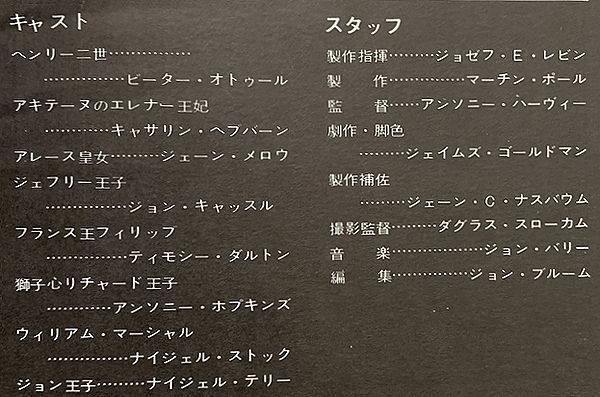 キャスト
ヘンリー二世……………
……………ピーター・オトゥール
アキテーヌのエレナー王妃
…………キャサリン・ヘプバーン
アレース皇女………ジェーン・メロウ
ジェフリー王子
……………ジョン・キャッスル
フランス王フィリップ
……………ティモシー・ダルトン
獅子心リチャード王子
…………アンソニー・ホプキンズ
ウィリアム・マーシャル
……………ナイジェル・ストック
ジョン王子………ナイジェル・テリー
スタッフ
製作指揮………ジョゼフ・E・レビン
製　作……………マーチン・ポール
監　督………アンソニー・ハーヴィー
劇作・脚色
………ジェイムズ・ゴールドマン
製作補佐
………ジェーン・C・ナスバウム
撮影監督………ダグラス・スローカム
音　楽………………ジョン・バリー
編　集……………ジョン・ブルーム